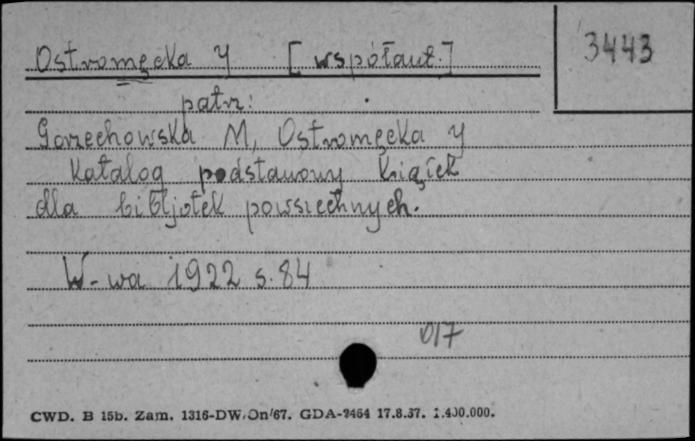 Ostromęcka Y [współaut.]
3443
patrz:
Gorzechowska M, Ostromęcka Y
Katalog podstawowy książek
dla bibljotek powszechnych.
W-wa 1922 s. 84
017
CWD. B 15b. Zam. 1316-DW/On/67. GDA-2464 17.8.67. 1.400.000.